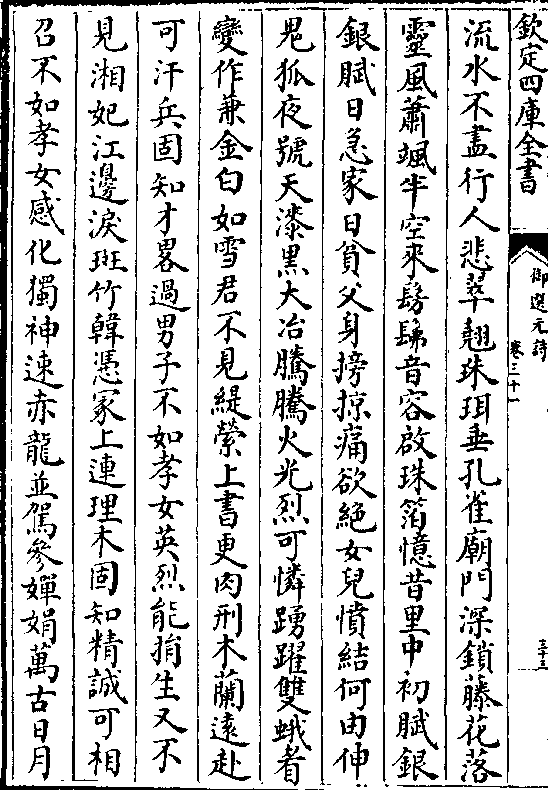 欽定四庫全書
御選元詩
卷三十一
三十三
流水不盡行人悲翠翹珠珥垂孔雀廟門深鎖藤花落
靈風蕭颯半空來髣髴音容啟珠箔憶昔里中初賦銀
銀賦日急家日貧父身搒掠痛欲絶女兒憤結何由伸
鬼狐夜號天漆黒大冶騰騰火光烈可憐踴躍雙蛾眉
變作兼金白如雪君不見緹縈上書更肉刑木蘭遠赴
可汗兵固知才畧過男子不如孝女英烈能捐生又不
見湘妃江邊淚斑竹韓憑冢上連理木固知精誠可相
召不如孝女感化獨神速赤龍並駕參嬋娟萬古日月